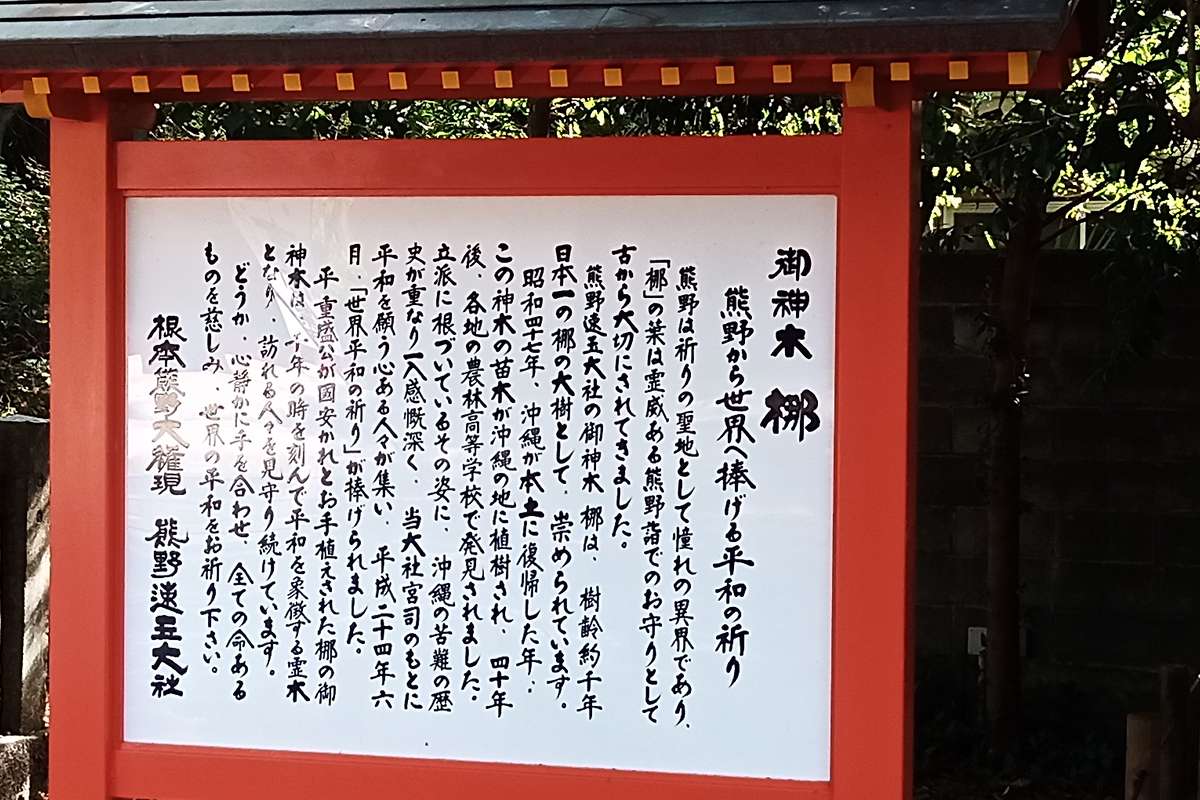 御神木 梛
熊野から世界へ捧げる平和の祈り
熊野は祈りの聖地として憧れの異界であり、
「梛」の葉は霊威ある熊野詣でのお守りとして
古から大切にされてきました。
熊野速玉大社の御神木 梛は、樹齢約千年
日本一の梛の大樹として、崇められています。
昭和四十七年、沖縄が本土に復帰した年、
この神木の苗木が沖縄の地に植樹され、四十年
後、各地の農林高等学校で発見されました。
立派に根づいているその姿に、沖縄の苦難の歴
史が重なり一入感慨深く、当大社宮司のもとに
平和を願う心ある人々が集い、平成二十四年六
月、「世界平和の祈り」が捧げられました。
平重盛公が國安かれとお手植えされた梛の御
神木は、千年の時を刻んで平和を象徴する霊木
となり、訪れる人々を見守り続けています。
どうか、心静かに手を合わせ、全ての命ある
ものを慈しみ、世界の平和をお祈り下さい。
根本熊野大権現 熊野速玉大社